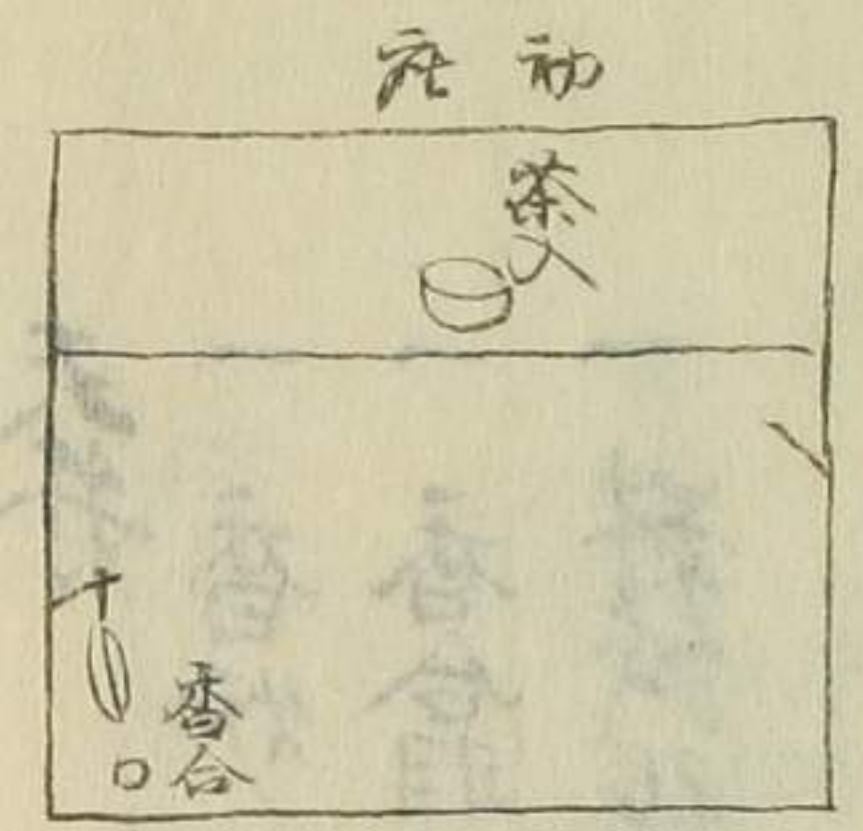 初座
茶入
香合